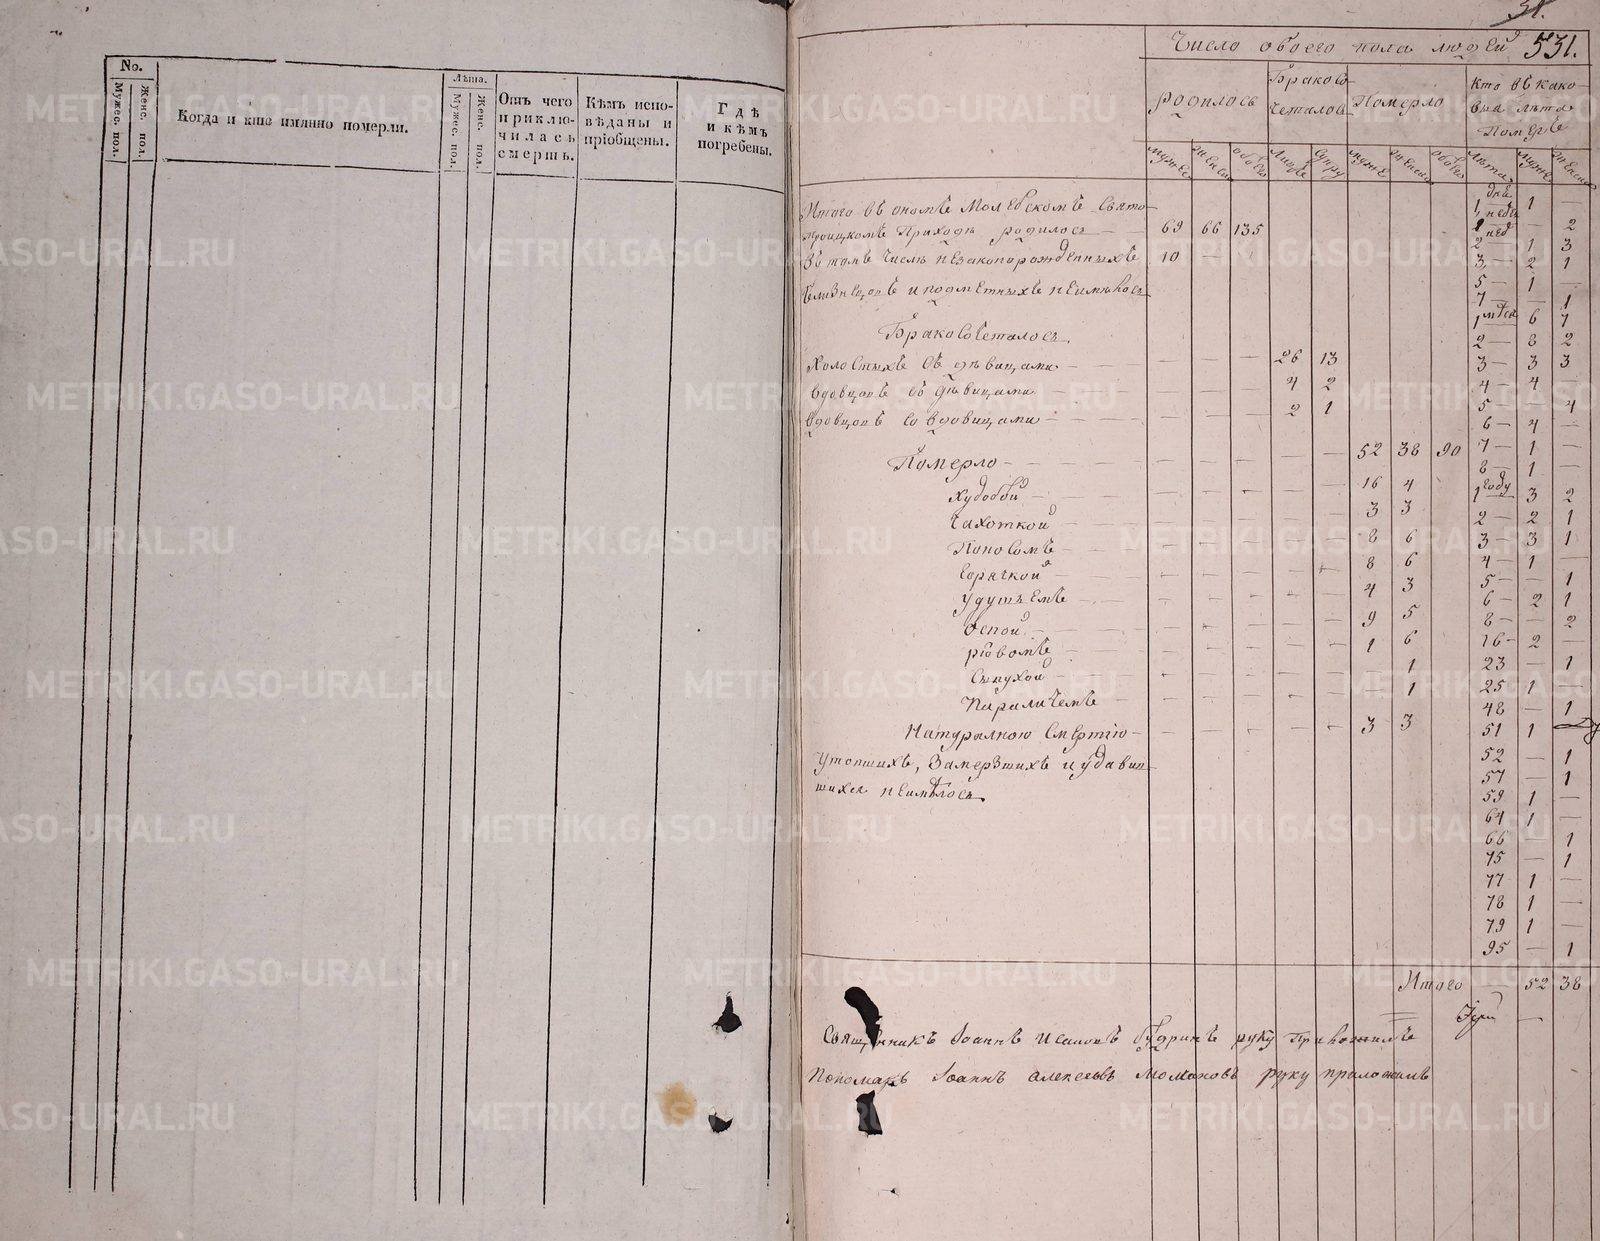 No.
Мужес. пол.
Женс. пол.
Когда и кто имянно померли.
Лѣта.
Мужес. пол.
Женс. пол.
Отъ чего
приклю-
чилась
смерть.
Кѣмъ испо-
вѣданы и
пріобщены.
Гдѣ
и кѣмъ
погребены.
31.
Число обоего пола людей 531.
родилось
Браковоч
четалось
Померло
Кто въ како-
выя лѣта
Померъ
мужес женск обоего Лицъ Супру мужс женска обоего лѣта мужс женска
Итого въ ономъ Молебскомъ Свято-
троицкомъ Приходѣ родилось 69 66 135
Въ томъ числѣ незаконорожденныхъ 10
близнецовъ и подметныхъ неимѣлось
Бракосочеталось.
Холостыхъ съ дѣвицами 26 13
вдовцовъ съ дѣвицами 4 2
вдовцовъ со вдовицами 2 1
Померло 52 38 90
Худобой 16 4
Чахоткой 3 3
Поносомъ 8 6
Горячкой 8 6
Удушьемъ 4 3
Оспой 9 5
рвомъ 1 6
Сыпухой 1
Параличемъ 1
Натуралною Смертію 3 3
Утопшихъ, Замерзшихъ и удавив
шихся неимѣлось.
дня
1 1 —
недѣл
1 нед — 2
2 — 1 3
3 — 2 1
5 — 1 —
7 — — 1
1 мѣся 6 7
2 — 8 2
3 — 3 3
4 — 4 —
5 — — 4
6 — 4 —
7 — 1 —
8 — 1 —
1 году 3 2
2 — 2 1
3 — 3 1
4 — 1 —
5 — — 1
6 — 2 1
8 — — 2
16 — 2 —
23 — 1
25 1 —
48 — 1
51 1 —
52 — 1
57 — 1
59 1 —
64 1 —
66 — 1
75 — 1
77 1 —
78 1 —
79 1 —
95 — 1
Итого 52 38
Священникъ Іоаннъ Исаковъ Будринъ руку приложилъ
Пономарь Іоаннъ Алексеевъ Момановъ руку приложилъ
METRIKI.GASO-URAL.RU